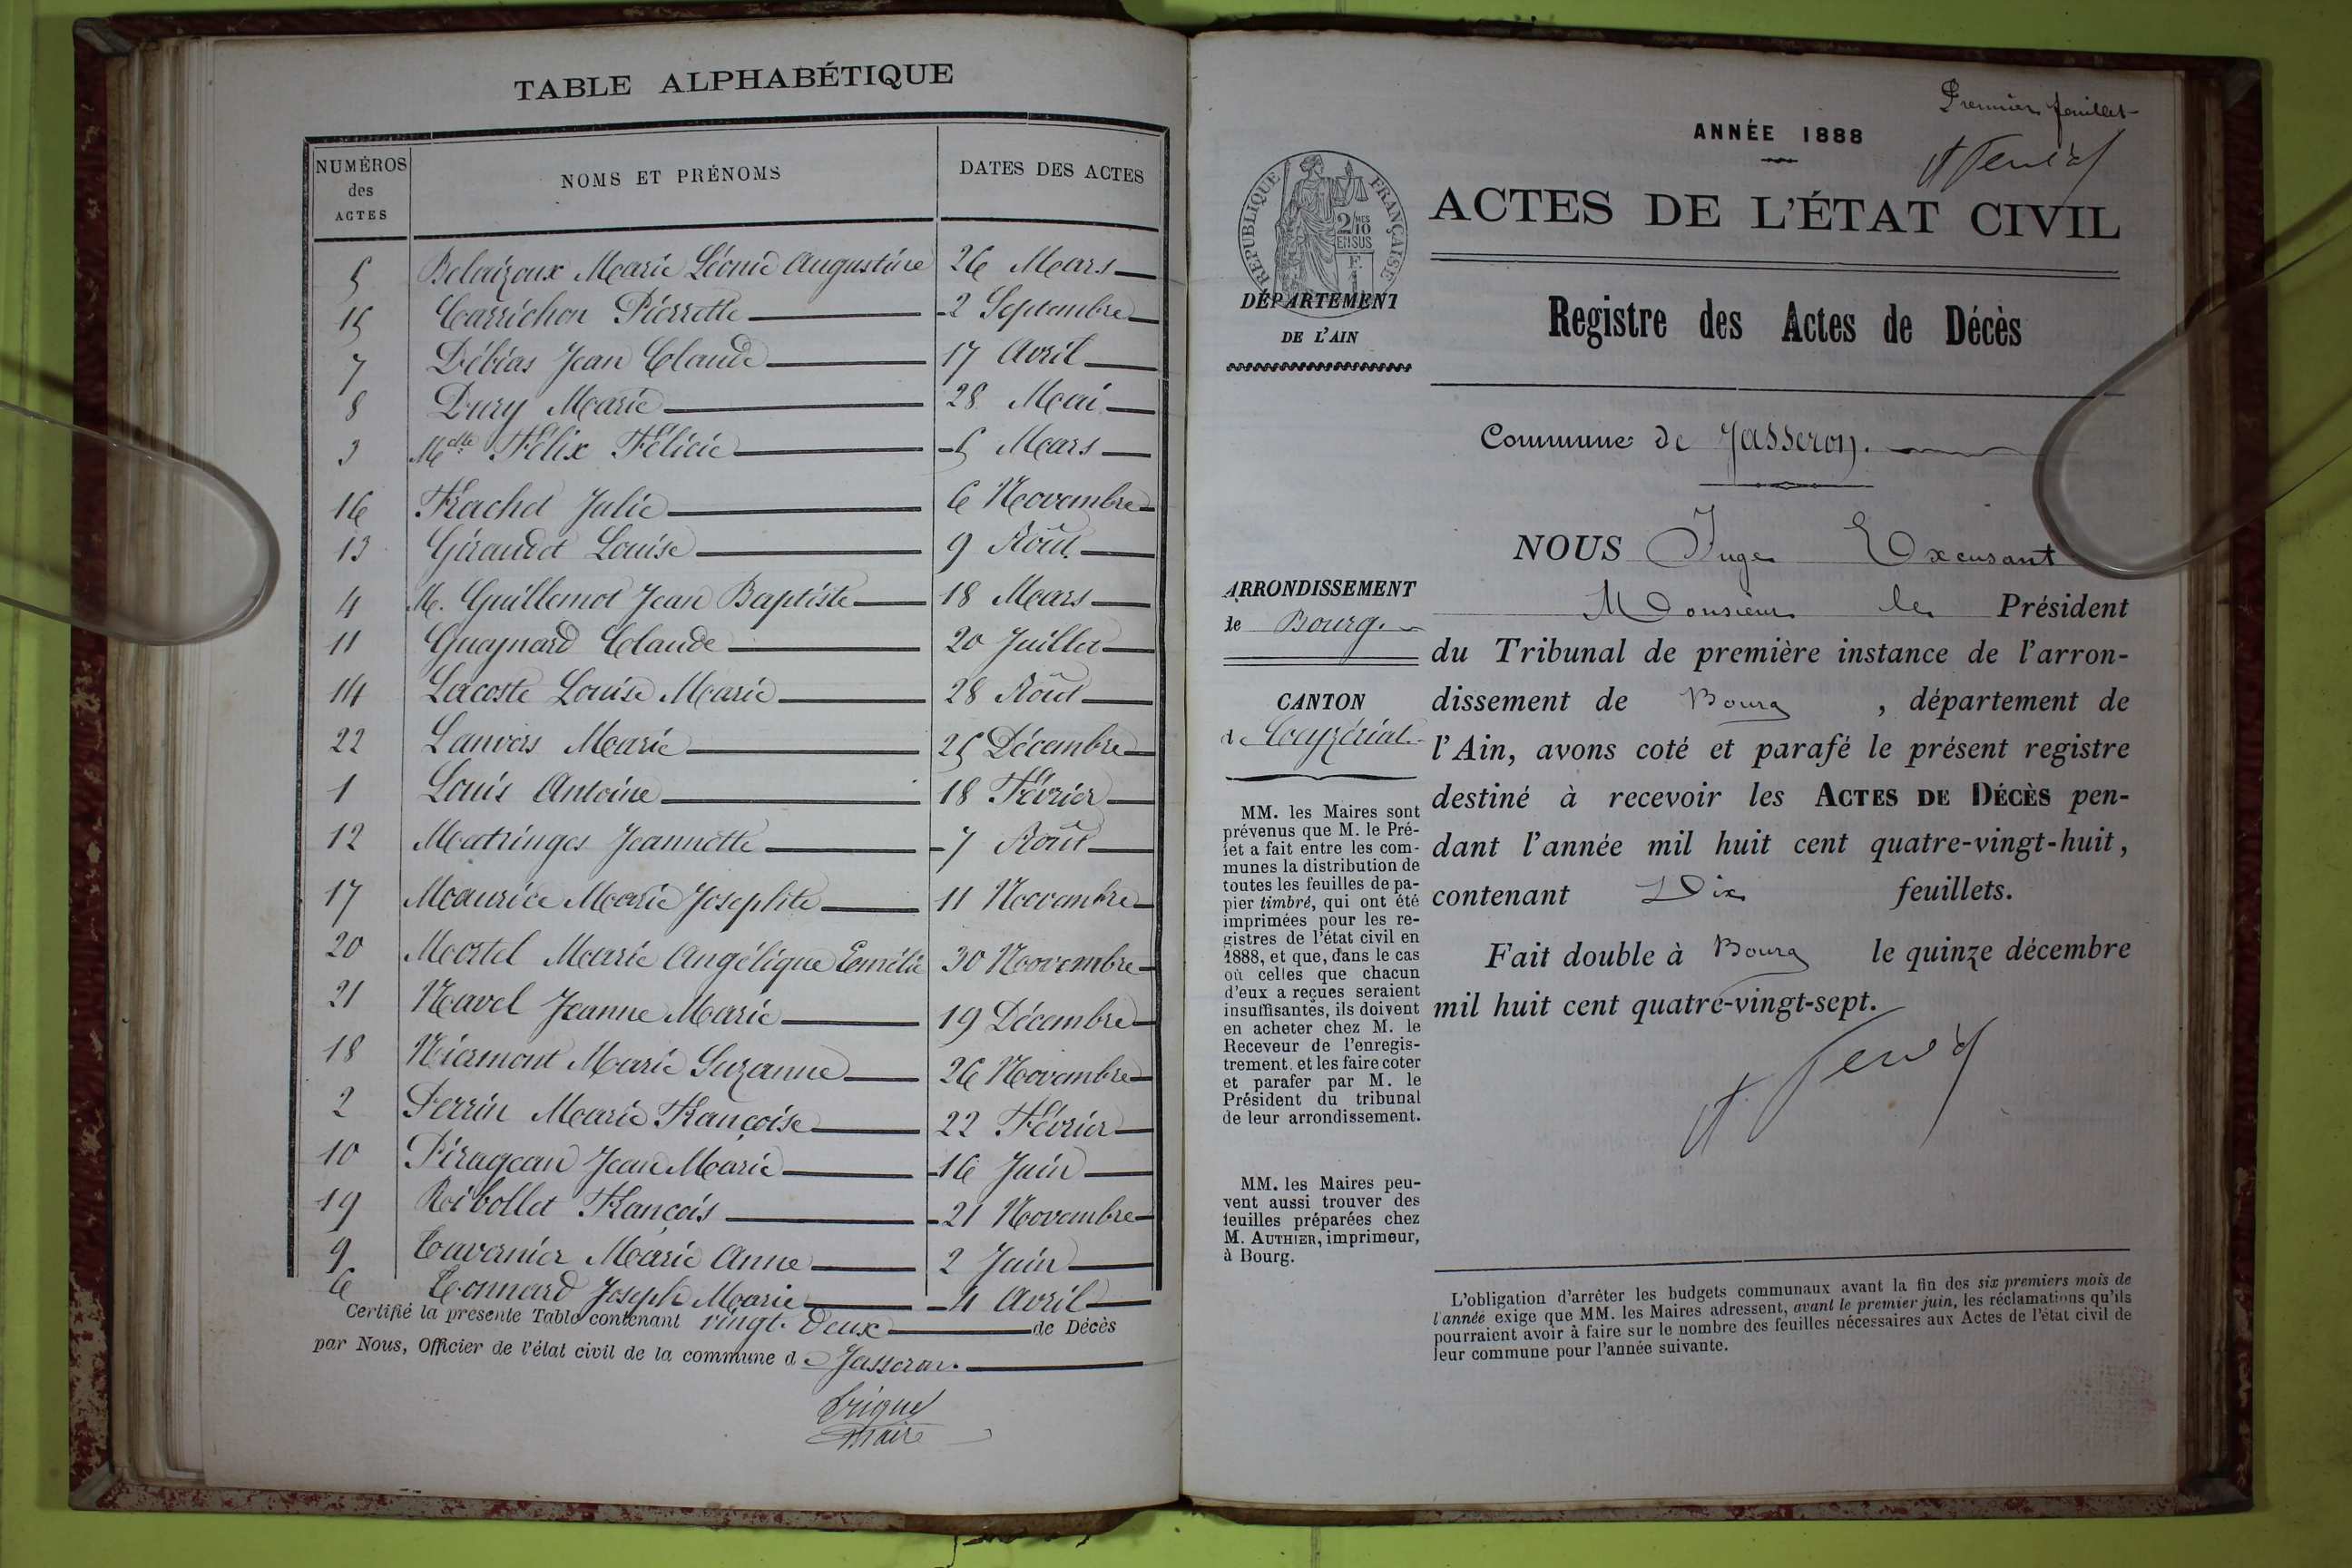 TABLE ALPHABÉTIQUE
NUMÉROS des ACTES NOMS ET PRÉNOMS DATES DES ACTES
5 Belaizoux Marie Léonie Augustine 26 Mars
15 Carrichon Pierrette 2 Septembre
7 Débias Jean Claude 17 Avril
8 Dury Marie 28 Mai
3 Mdlle Félix Félicie 5 Mars
16 Frachet Julie 6 Novembre
13 Giraudet Louise 9 Août
4 M. Guillemot Jean Baptiste 18 Mars
11 Guaynard Claude 20 Juillet
14 Lacoste Louise Marie 28 Août
22 Lanvers Marie 25 Décembre
1 Louis Antoine 18 Février
12 Matringes Jeannette 7 Août
17 Maurice Marie Josephte 11 Novembre
20 Mortel Marie Angélique Emélie 30 Novembre
21 Navel Jeanne Marie 19 Décembre
18 Niermont Marie Suzanne 26 Novembre
2 Perrin Marie Françoise 22 Février
10 Pirageau Jean Marie 16 Juin
19 Roibollet François 21 Novembre
9 Tavernier Marie Anne 2 Juin
6 Tonnard Joseph Marie 4 Avril
Certifié la présente Table contenant vingt-deux de Décès
par Nous, Officier de l'état civil de la commune de Jasseron.
Maire
Premier feuillet
ANNÉE 1888
RÉPUBLIQUE FRANÇAISE
2/10 MES
EN SUS
ACTES DE L'ÉTAT CIVIL
DÉPARTEMENT
DE L'AIN
Registre des Actes de Décès
Commune de Jasseron.
ARRONDISSEMENT
de Bourg.
CANTON
de Ceyzériat.
MM. les Maires sont
prévenus que M. le Pré-
fet a fait entre les com-
munes la distribution de
toutes les feuilles de pa-
pier timbré, qui ont été
imprimées pour les re-
gistres de l'état civil en
1888, et que, dans le cas
où celles que chacun
d'eux a reçues seraient
insuffisantes, ils doivent
en acheter chez M. le
Receveur de l'enregis-
trement, et les faire coter
et parafer par M. le
Président du tribunal
de leur arrondissement.
MM. les Maires peu-
vent aussi trouver des
feuilles préparées chez
M. AUTHIER, imprimeur,
à Bourg.
NOUS Juge Excusant
Monsieur le Président
du Tribunal de première instance de l'arron-
dissement de Bourg, département de
l'Ain, avons coté et parafé le présent registre
destiné à recevoir les ACTES DE DÉCÈS pen-
dant l'année mil huit cent quatre-vingt-huit,
contenant Dix feuillets.
Fait double à Bourg le quinze décembre
mil huit cent quatre-vingt-sept.
L'obligation d'arrêter les budgets communaux avant la fin des six premiers mois de
l'année exige que MM. les Maires adressent, avant le premier juin, les réclamations qu'ils
pourraient avoir à faire sur le nombre des feuilles nécessaires aux Actes de l'état civil de
leur commune pour l'année suivante.